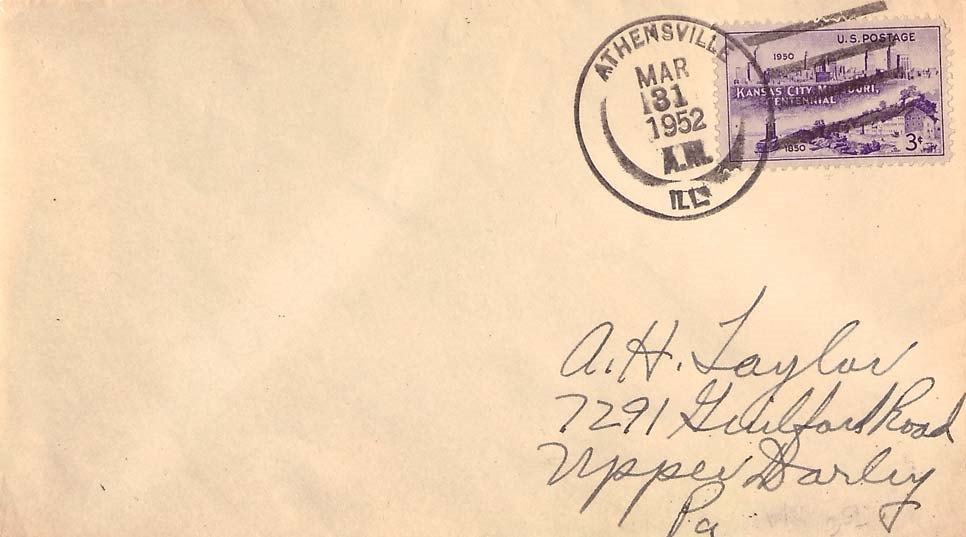 ATHENSVILLE
MAR
31
1952
A.M.
ILL
U.S. POSTAGE
1950
KANSAS CITY, MISSOURI,
CENTENNIAL
1850
3¢
A. H. Taylor
7291 Guilford Road
Upper Darby
Pa